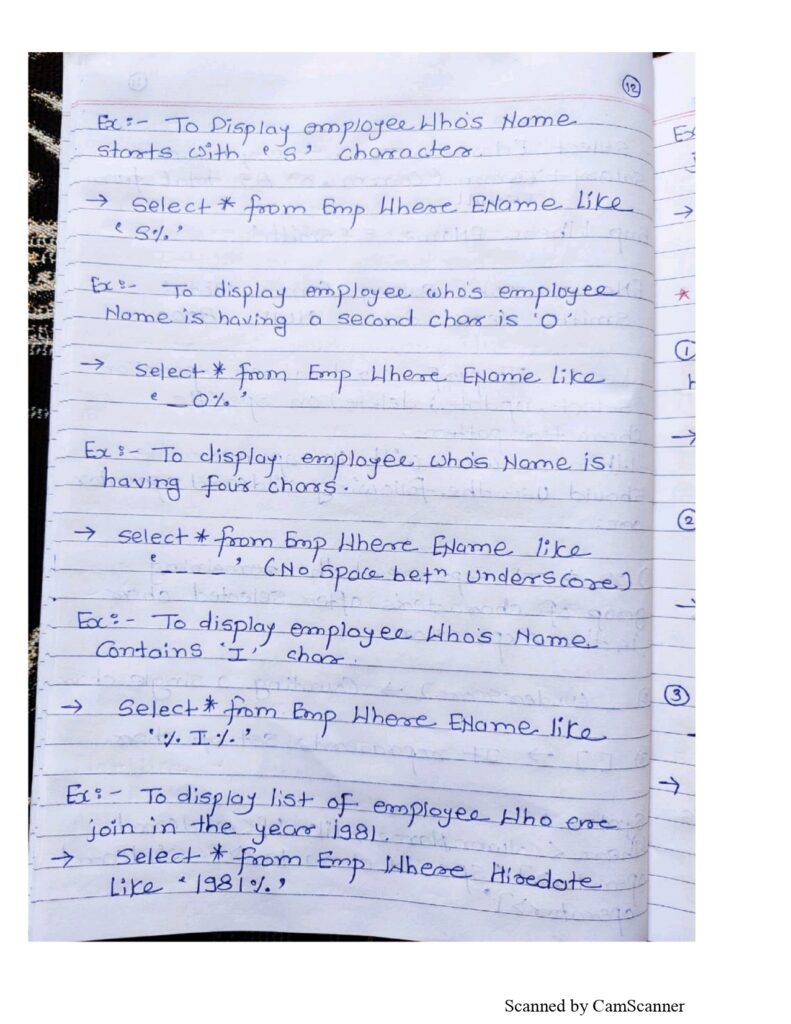 12
Ex:- To Display employee Who's Name
starts with 'S' character.
→ Select * from Emp Where EName Like
'S%'
Ex:- To display employee who's employee
Name is having a second char is 'O'
→ Select * from Emp Where EName Like
'_O%'
Ex:- To display employee who's Name is
having four chars.
→ select * from Emp Where EName like
'____' (No space betn underscore)
Ex:- To display employee Who's Name
Contains 'I' char.
→ Select * from Emp Where EName like
'%I%'
Ex:- To display list of employee Who are
join in the year 1981.
→ Select * from Emp Where Hiredate
Like '1981%'
Ex
→
*
1
→
2
→
3
→
Scanned by CamScanner